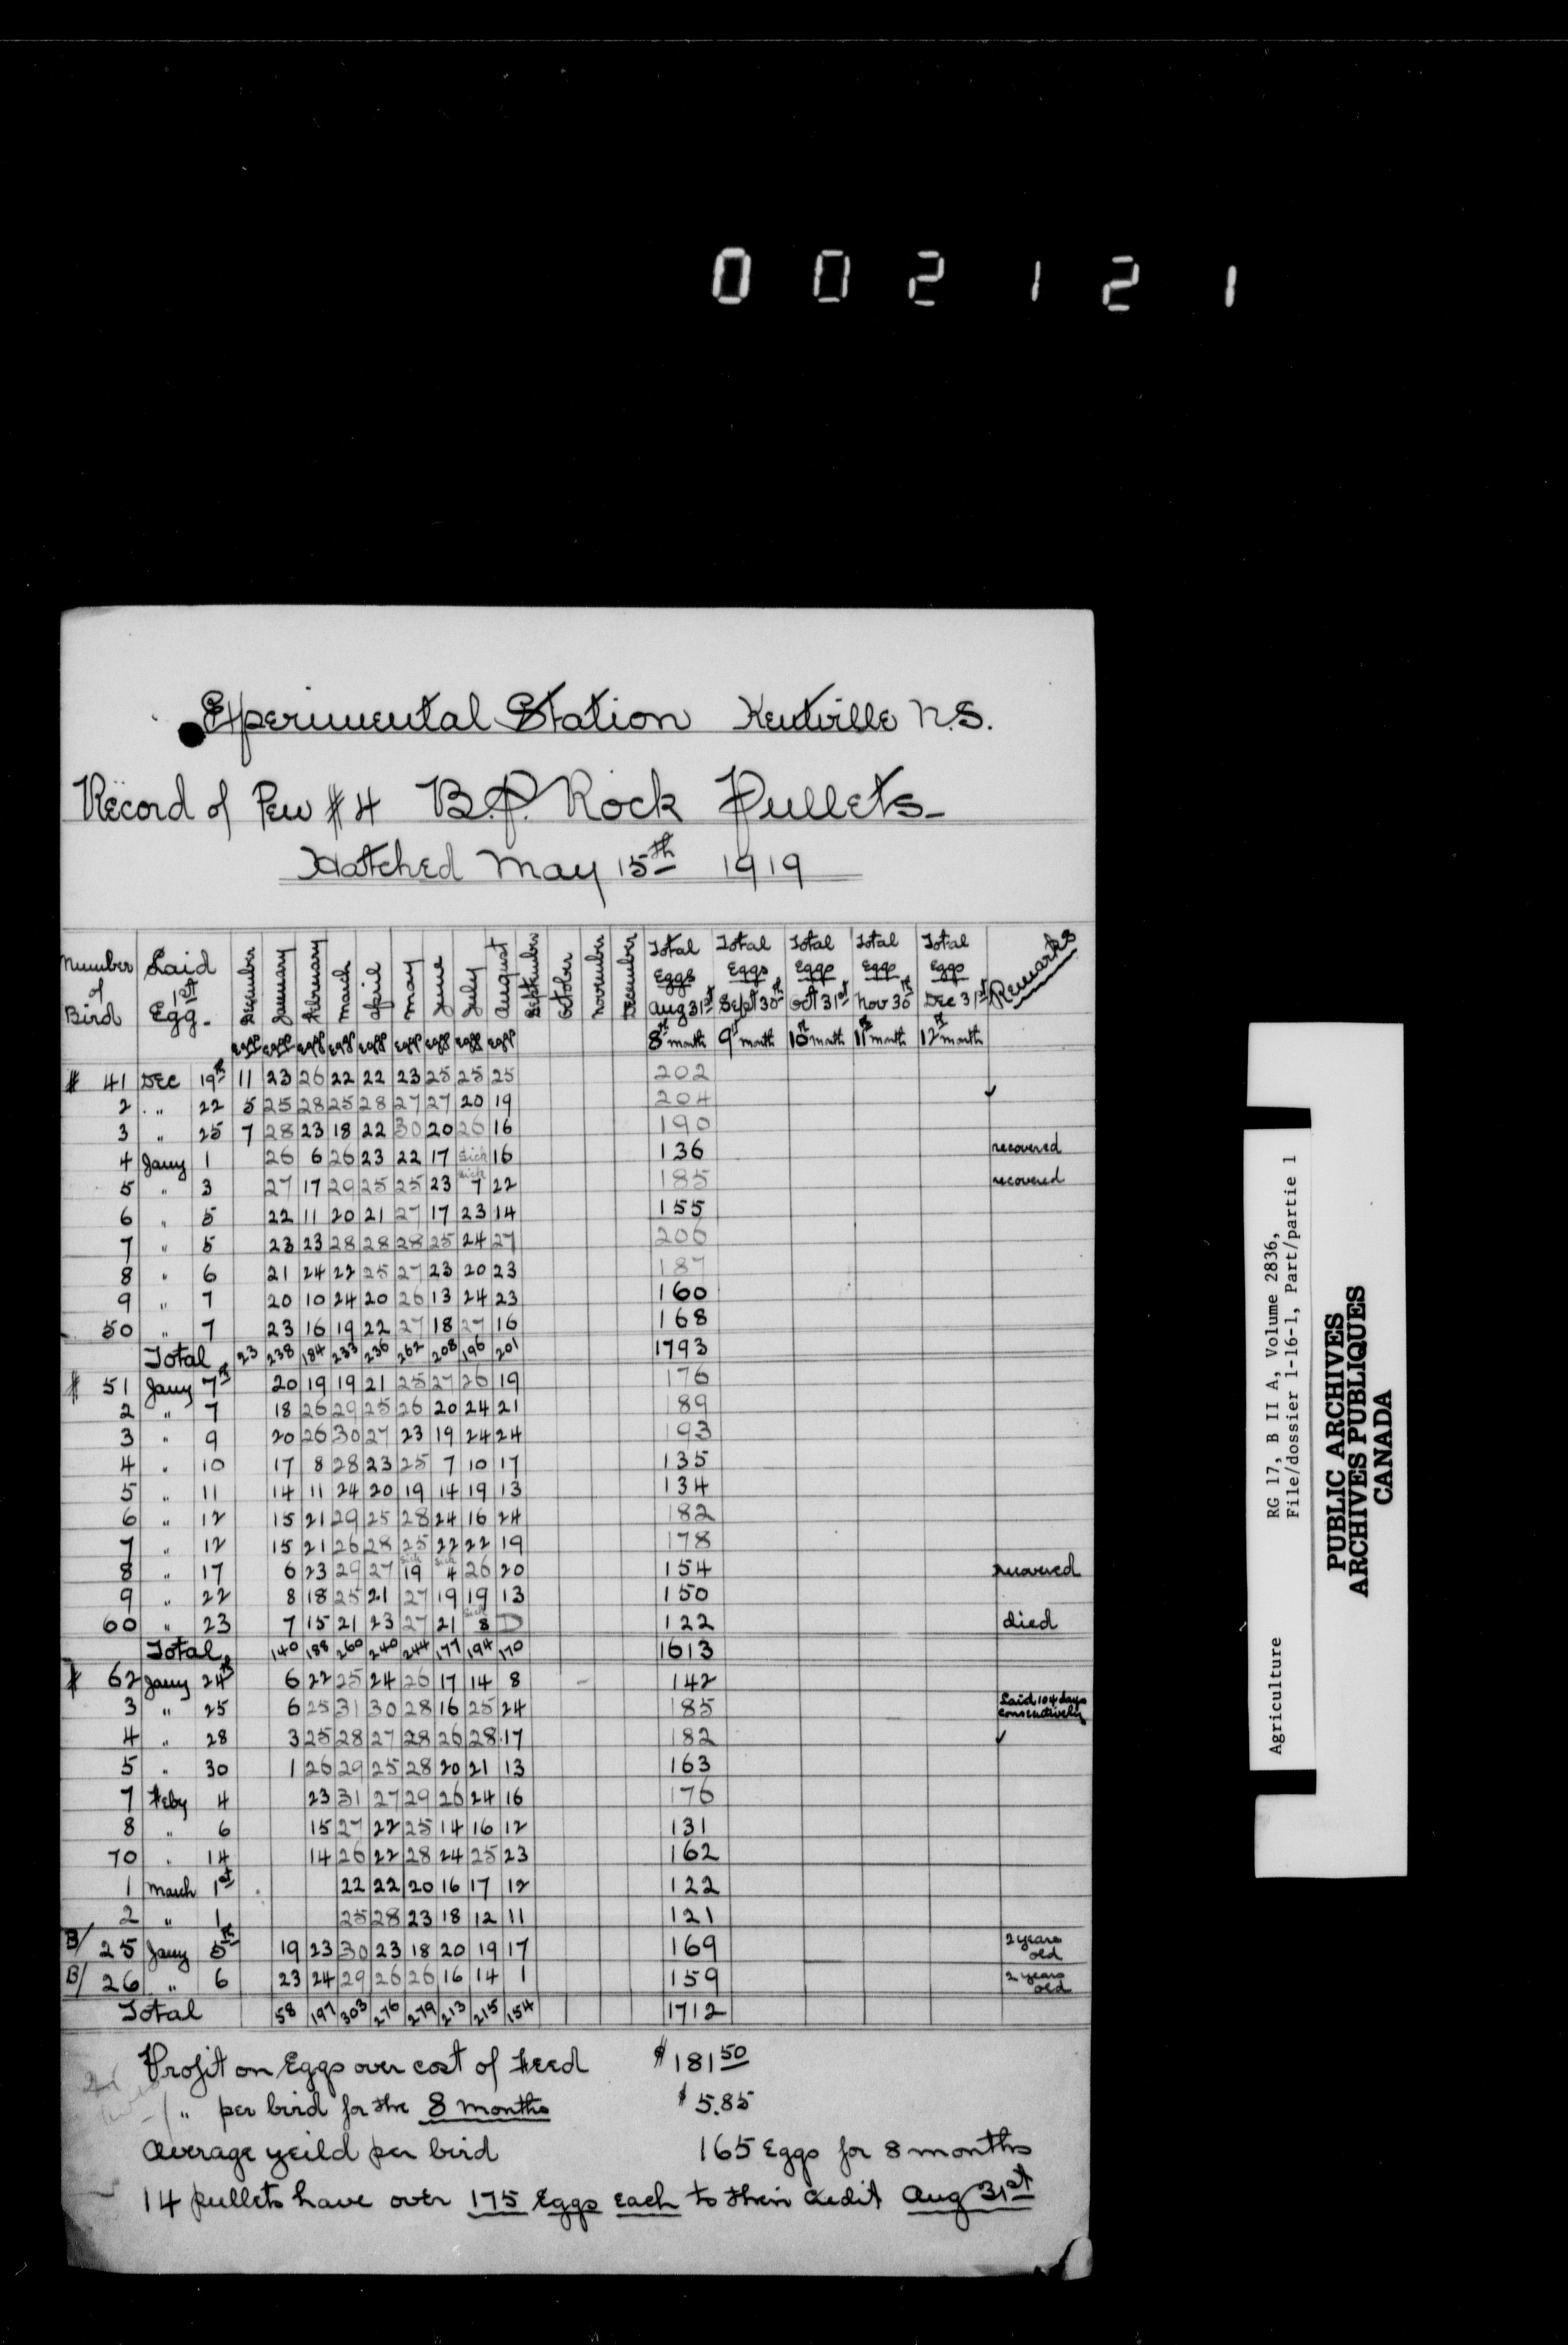 002121
Experimental Station Kentville N.S.
Record of Pen #4 B.P. Rock Pullets
Hatched May 15th 1919
Number of Bird Laid 1st Egg. December January February March April May June July August September October November December Total Eggs Aug 31st Total Eggs Sept 30th Total Eggs Oct 31st Total Eggs Nov 30th Total Eggs Dec 31st Remarks
eggs eggs eggs eggs eggs eggs eggs eggs eggs 8th month 9th month 10th month 11th month 12th month
# 41 Dec 19th 11 23 26 22 22 23 25 25 25 202
2 " 22 5 25 28 25 28 27 27 20 19 204 ✓
3 " 25 7 28 23 18 22 30 20 26 16 190
4 Jany 1 26 6 26 23 22 17 Sick 16 136 recovered
5 " 3 27 17 29 25 25 23 Sick 7 22 185 recovered
6 " 5 22 11 20 21 27 17 23 14 155
7 " 5 23 23 28 28 28 25 24 27 206
8 " 6 21 24 22 25 27 23 20 23 187
9 " 7 20 10 24 20 26 13 24 23 160
50 " 7 23 16 19 22 27 18 27 16 168
Total 23 238 184 233 236 262 208 196 201 1793
# 51 Jany 7th 20 19 19 21 25 27 26 19 176
2 " 7 18 26 29 25 26 20 24 21 89
3 " 9 20 26 30 27 23 19 24 24 193
4 " 10 17 8 28 23 25 7 10 17 135
5 " 11 14 11 24 20 19 14 19 13 134
6 " 12 15 21 29 25 28 24 16 24 182
7 " 12 15 21 26 28 25 22 22 19 178
8 " 17 6 23 29 27 Sick 19 Sick 4 26 20 154 recovered
9 " 22 8 18 25 21 27 19 19 13 150
60 " 23 7 15 21 23 27 21 Sick 8 D 122 died
Total 140 188 260 240 244 177 194 170 1613
# 62 Jany 24th 6 22 25 24 26 17 14 8 142
3 " 25 6 25 31 30 28 16 25 24 185 Laid 104 days consecutively
4 " 28 3 25 28 27 28 26 28 17 182 ✓
5 " 30 1 26 29 25 28 20 21 13 163
7 Feby 4 23 31 27 29 26 24 16 176
8 " 6 15 27 22 25 14 16 12 131
70 " 14 14 26 22 28 24 25 23 162
1 March 1st 22 22 20 16 17 12 122
2 " 1 25 28 23 18 12 11 121
B/ 25 Jany 5th 19 23 30 23 18 20 19 17 169 2 years old
B/ 26 " 6 23 24 29 26 26 16 14 1 159 2 years old
Total 58 197 303 276 279 213 215 154 1712
Profit on Eggs over cost of Feed $181 50
" per bird for the 8 months $5.85
Average yeild per bird 165 Eggs for 8 months
14 pullets have over 175 Eggs each to their credit Aug 31st
Agriculture RG 17, B II A, Volume 2836,
File/dossier 1-16-1, Part/partie 1
PUBLIC ARCHIVES
ARCHIVES PUBLIQUES
CANADA